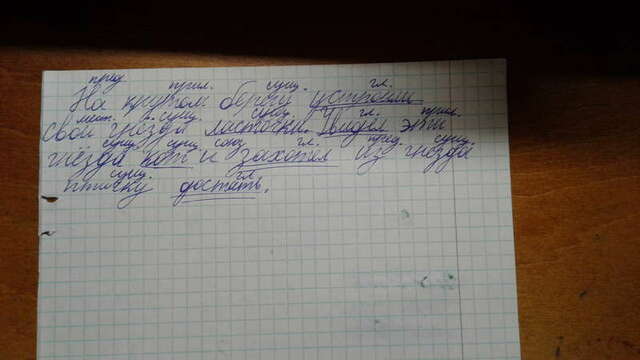 пред прил. сущ. гл.
На крутом берегу устроили
мест. сущ. сущ. гл. прил.
свои гнёзда ласточки. Увидел эти
сущ. сущ. союз гл. пред. сущ.
гнёзда кот и захотел из гнезда
сущ. гл.
птичку достать.